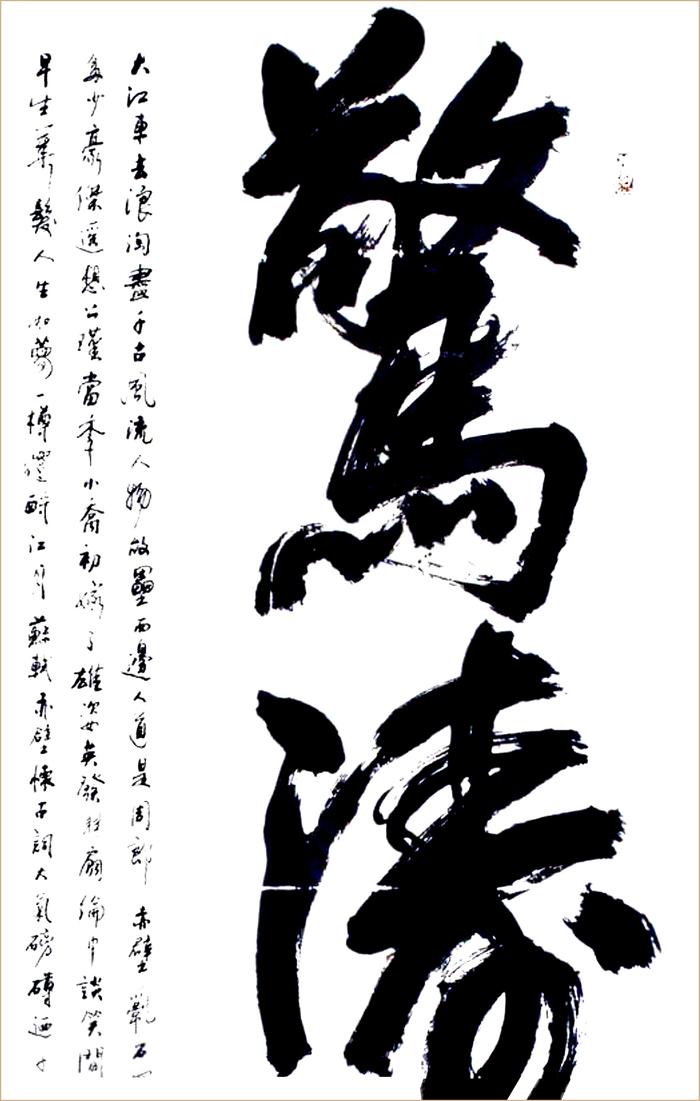 驚濤
大江東去浪淘盡千古風流人物故壘西邊人道是周郎赤壁亂石
多少豪傑遙想公瑾當年小喬初嫁了雄姿英發羽扇綸巾談笑間
早生華髮人生如夢一樽還酹江月蘇軾赤壁懷古詞大氣磅礴